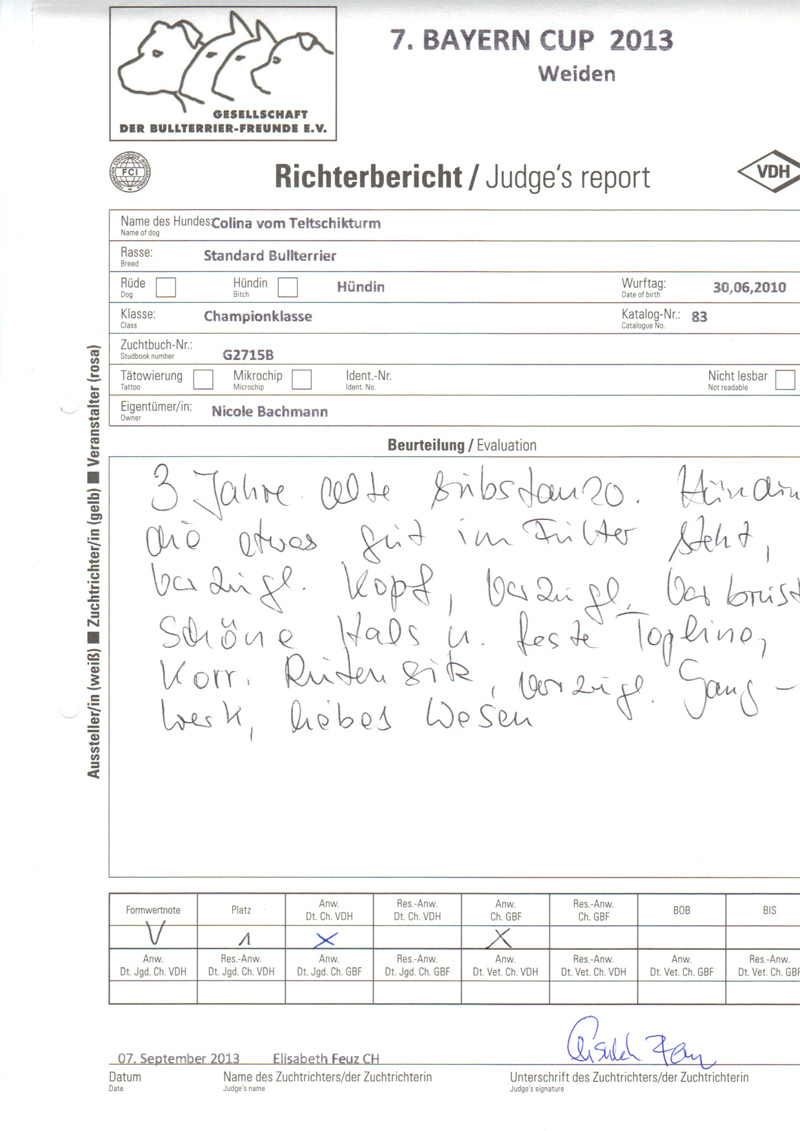 7. BAYERN CUP 2013
Weiden
GESELLSCHAFT
DER BULLTERRIER-FREUNDE E.V.
FCI
Richterbericht / Judge's report
VDH
Name des Hundes: Colina vom Teltschikturm
Name of dog
Rasse: Standard Bullterrier
Breed
Rüde Hündin Hündin Wurftag: 30,06,2010
Dog Bitch Date of birth
Klasse: Championklasse Katalog-Nr.: 83
Class Catalogue No.
Zuchtbuch-Nr.: G2715B
Studbook number
Tätowierung Mikrochip Ident.-Nr. Nicht lesbar
Tattoo Microchip Ident. No. Not readable
Eigentümer/in: Nicole Bachmann
Owner
Aussteller/in (weiß) ■ Zuchtrichter/in (gelb) ■ Veranstalter (rosa)
Beurteilung / Evaluation
3 Jahre alte substanzv. Hündin
die etwas gut im Futter steht,
vorzügl. Kopf, vorzügl. Vorbrust
schöne Hals u. feste Topline,
Korr. Rutensitz, vorzügl. Gang-
werk, liebes Wesen
Formwertnote Platz Anw. Dt. Ch. VDH Res.-Anw. Dt. Ch. VDH Anw. Ch. GBF Res.-Anw. Ch. GBF BOB BIS
V 1 X X
Anw. Dt. Jgd. Ch. VDH Res.-Anw. Dt. Jgd. Ch. VDH Anw. Dt. Jgd. Ch. GBF Res.-Anw. Dt. Jgd. Ch. GBF Anw. Dt. Vet. Ch. VDH Res.-Anw. Dt. Vet. Ch. VDH Anw. Dt. Vet. Ch. GBF Res.-Anw. Dt. Vet. Ch. GBF
07. September 2013 Elisabeth Feuz CH
Datum Name des Zuchtrichters/der Zuchtrichterin Unterschrift des Zuchtrichters/der Zuchtrichterin
Date Judge's name Judge's signature